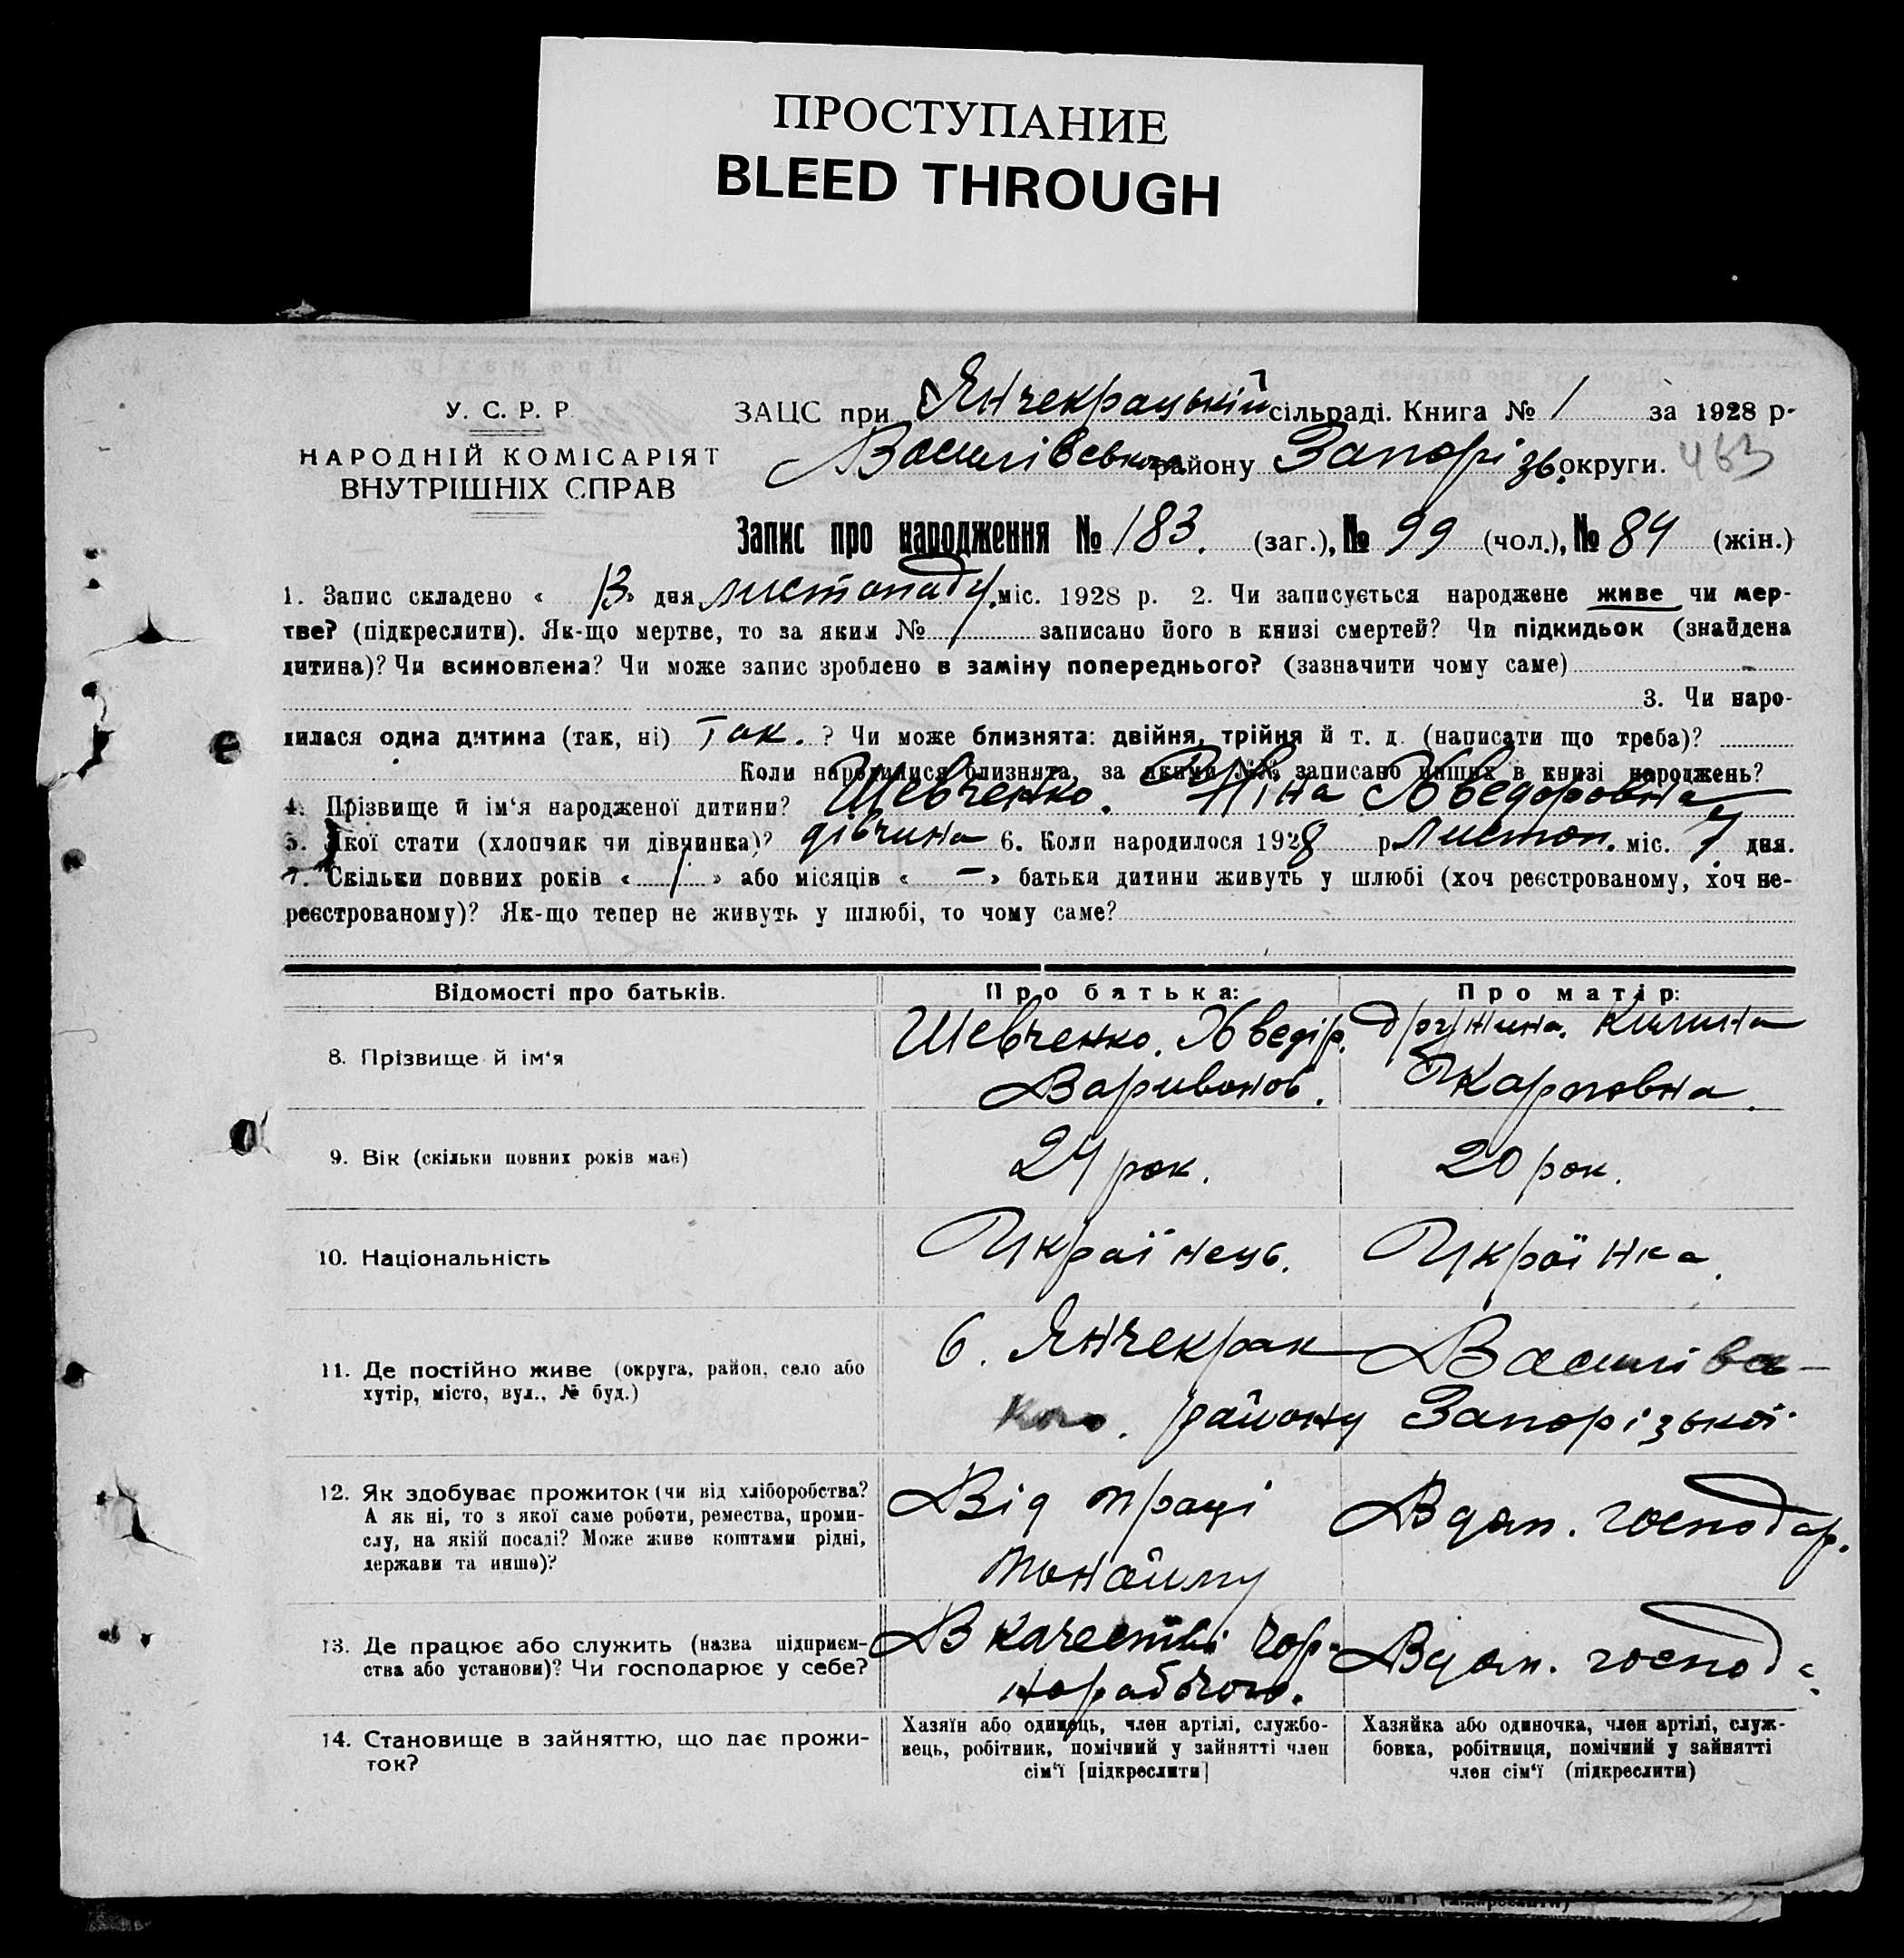 ПРОСТУПАНИЕ
BLEED THROUGH
У. С. Р. Р.
НАРОДНІЙ КОМІСАРІЯТ
ВНУТРІШНІХ СПРАВ
ЗАЦС при Янчекрацькій сільраді. Книга № 1 за 1928 р.
Василівського району Запорізьк. округи. 463
Запис про народження № 183. (заг.), № 99 (чол.), № 84 (жін.)
1. Запис складено « 13 » дня листопаду міс. 1928 р. 2. Чи записується народжене живе чи мер-
тве? (підкреслити). Як-що мертве, то за яким № записано його в книзі смертей? Чи підкидьок (знайдена
дитина)? Чи всиновлена? Чи може запис зроблено в заміну попереднього? (зазначити чому саме)
3. Чи наро-
дилася одна дитина (так, ні) Так. ? Чи може близнята: двійня, трійня й т. д. (написати що треба)?
Коли народилися близнята, за якими №№ записано инших в книзі народжень?
4. Прізвище й ім'я народженої дитини? Шевченко. Ніна Хведоровна
5. Якої стати (хлопчик чи дівчинка)? дівчина 6. Коли народилося 1928 р. Листоп. міс. 7 дня.
7. Скільки повних років « 1 » або місяців « — » батьки дитини живуть у шлюбі (хоч реєстрованому, хоч не-
реєстрованому)? Як-що тепер не живуть у шлюбі, то чому саме?
Відомості про батьків.
Про батька:
Про матір:
8. Прізвище й ім'я
Шевченко. Хведір.
Варивонов.
дружина. Килина
Карповна.
9. Вік (скільки повних років має)
24 рок.
20 рок.
10. Національність
Українець.
Українка.
11. Де постійно живе (округа, район, село або
хутір, місто, вул., № буд.)
с. Янчекрак Василівс-
кого. району Запорізької
12. Як здобуває прожиток (чи від хліборобства?
А як ні, то з якої саме роботи, ремества, проми-
слу, на якій посаді? Може живе коштами рідні,
держави та инше)?
Від праці
понайму
В дом. господар.
13. Де працює або служить (назва підприєм-
ства або установи)? Чи господарює у себе?
В качестві чор-
норабочого.
В дом. господ.
14. Становище в зайняттю, що дає прожи-
ток?
Хазяїн або одинець, член артілі, службо-
вець, робітник, помічний у зайнятті член
сім'ї [підкреслити]
Хазяйка або одиночка, член артілі, служ-
бовка, робітниця, помічний у зайнятті
член сім'ї (підкреслити)